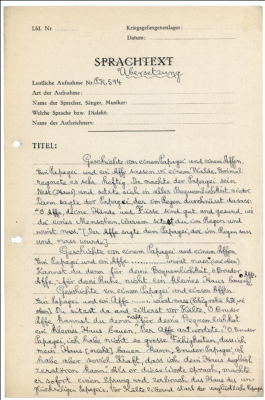 Lfd. Nr
Kriegsgefangenenlager:
Datum:
SPRACHTEXT
Übersetzung
Lautliche Aufnahme Nr. PK 594
Art der Aufnahme:
Name der Sprecher, Sänger, Musiker:
Welche Sprache bzw. Dialekt:
Name des Aufzeichners:
TITEL:
Geschichte von einem Papagei und einem Affen.
Ein Papagei und ein Affe sassen in einem Walde. Einmal
regnete es sehr heftig. Da machte der Papagei sein
Nest (Haus) und setzte sich in aller Bequemlichkeit nieder.
Dann sagte der Papagei, der im Regen
"O Affe, deine Hände und Füsse sind gut und gesund wie
die eines Menschen. Warum sitzt du im Regen und
wirst nass." (Der Affe sagte dem Papagei, der im Regen sass
und nass wurde.)
Geschichte von einem Papagei und einem Affen.
Ein Papagei und ein Affe wirst nass (wie oben).
Kannst du denn für deine Bequemlichkeit, o Bruder Affe,
für deine Ruhe, nicht ein kleines Haus bauen?
Geschichte von einem Papagei und einem Affen.
Ein Papagei und ein Affe wirst nass
oben). Du sitzest da und zitterst vor Kälte, O Bruder
Affe, kannst du denn nicht für deine Bequemlichkeit
ein kleines Haus bauen." Der Affe antwortete: "O Bruder
Papagei, ich habe nicht so grosse Fähigkeiten, dass ich
mein Haus (nicht) bauen kann, Bruder Papagei, ich
habe aber soviel Kraft, dass ich dein Haus sogleich
zerstören kann." Als er diese Worte sprach, machte
er sofort einen Sprung und zerbrach das Haus des un-
glücklichen Papageis. Vor Kälte